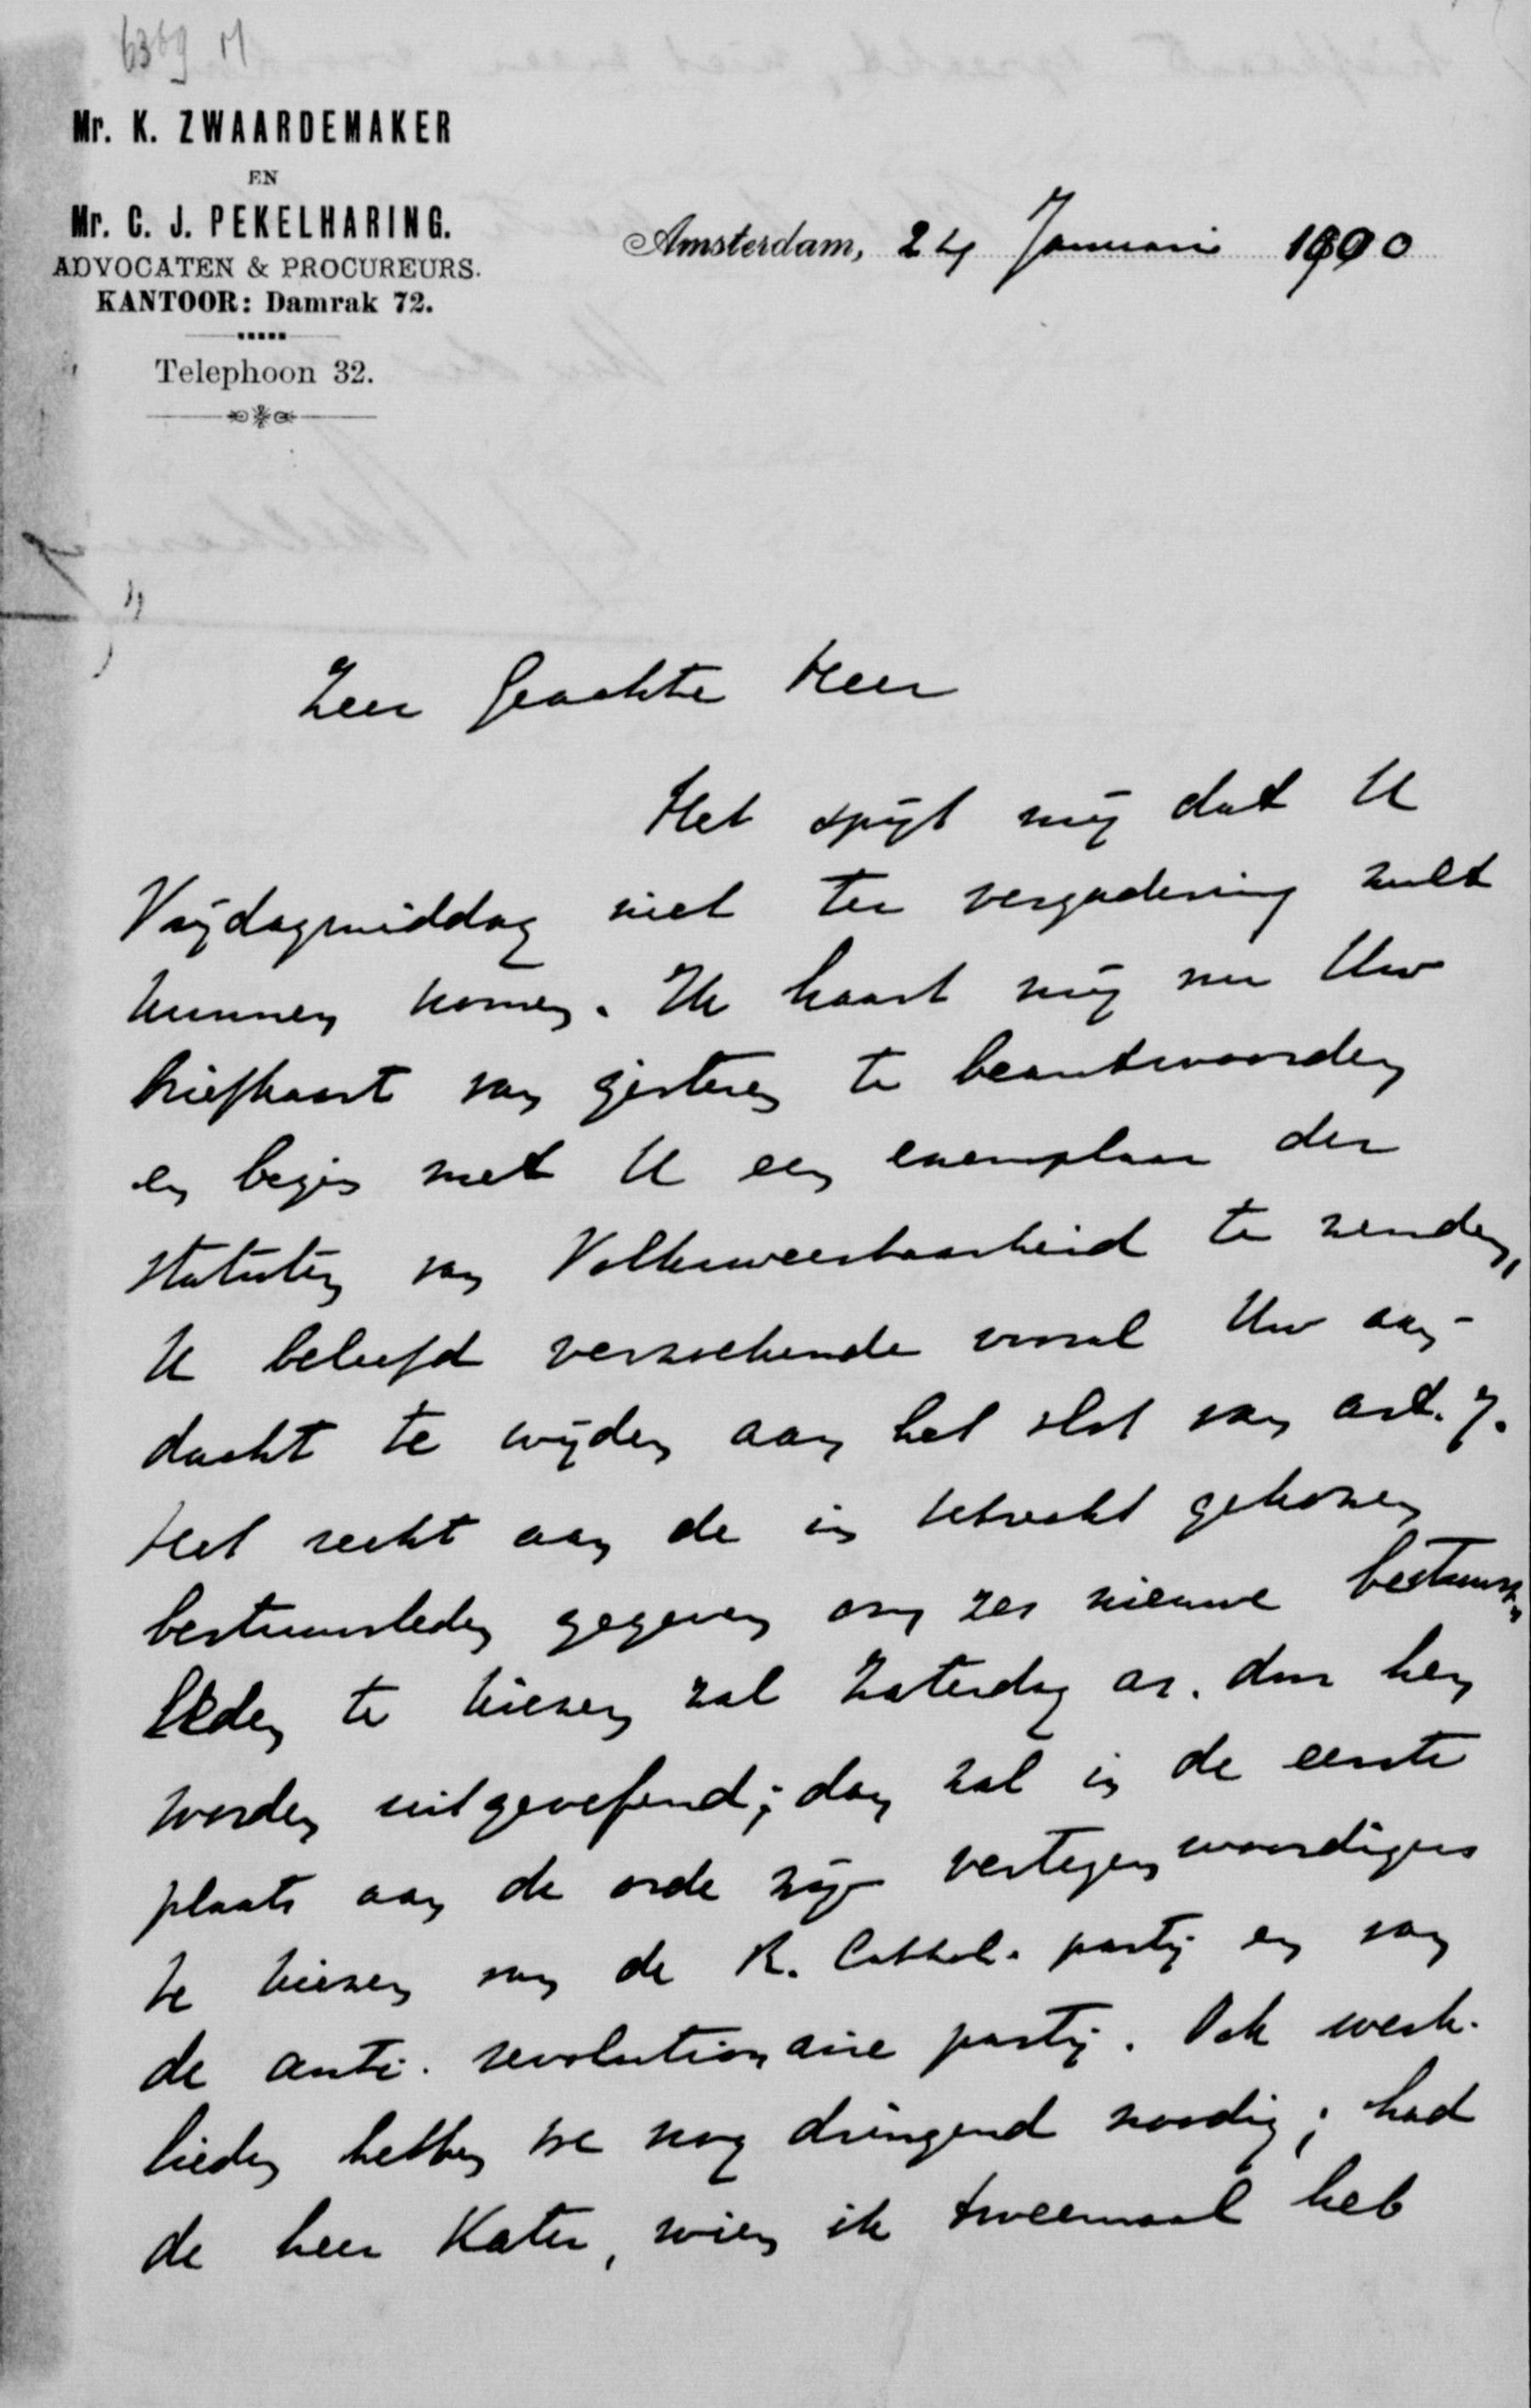 6369 M
Mr. K. ZWAARDEMAKER
EN
Mr. C. J. PEKELHARING.
ADVOCATEN & PROCUREURS.
KANTOOR: Damrak 72.
Telephoon 32.
Amsterdam, 24 Januari 1900
Zeer Geachte Heer
Het spijt mij dat U
Vrijdagmiddag niet ter vergadering zult
kunnen komen. Ik haast mij nu Uw
briefkaart van gisteren te beantwoorden
en begin met U een exemplaar der
statuten van Volksweerbaarheid te zenden,
U beleefd verzoekende vooral Uw aan-
dacht te wijden aan het slot van art. 7.
Het recht aan de in Utrecht gekozen
bestuursleden gegeven om zes nieuwe bestuurs-
leden te kiezen zal Zaterdag as. door hen
worden uitgeoefend; dan zal in de eerste
plaats aan de orde zijn vertegenwoordigers
te kiezen van de R. Cathol. partij en van
de anti-revolutionaire partij. Ook werk-
lieden hebben we nog dringend noodig; had
de heer Kater, wien ik tweemaal heb